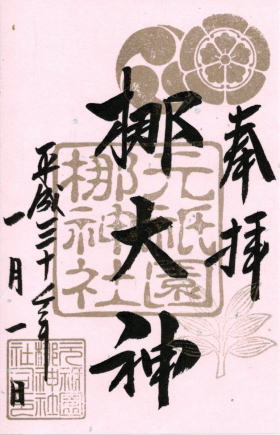 奉拝
梛大神
元祇園
梛神社
平成三十一年
一月一日
元祇園
梛神社
社司之印